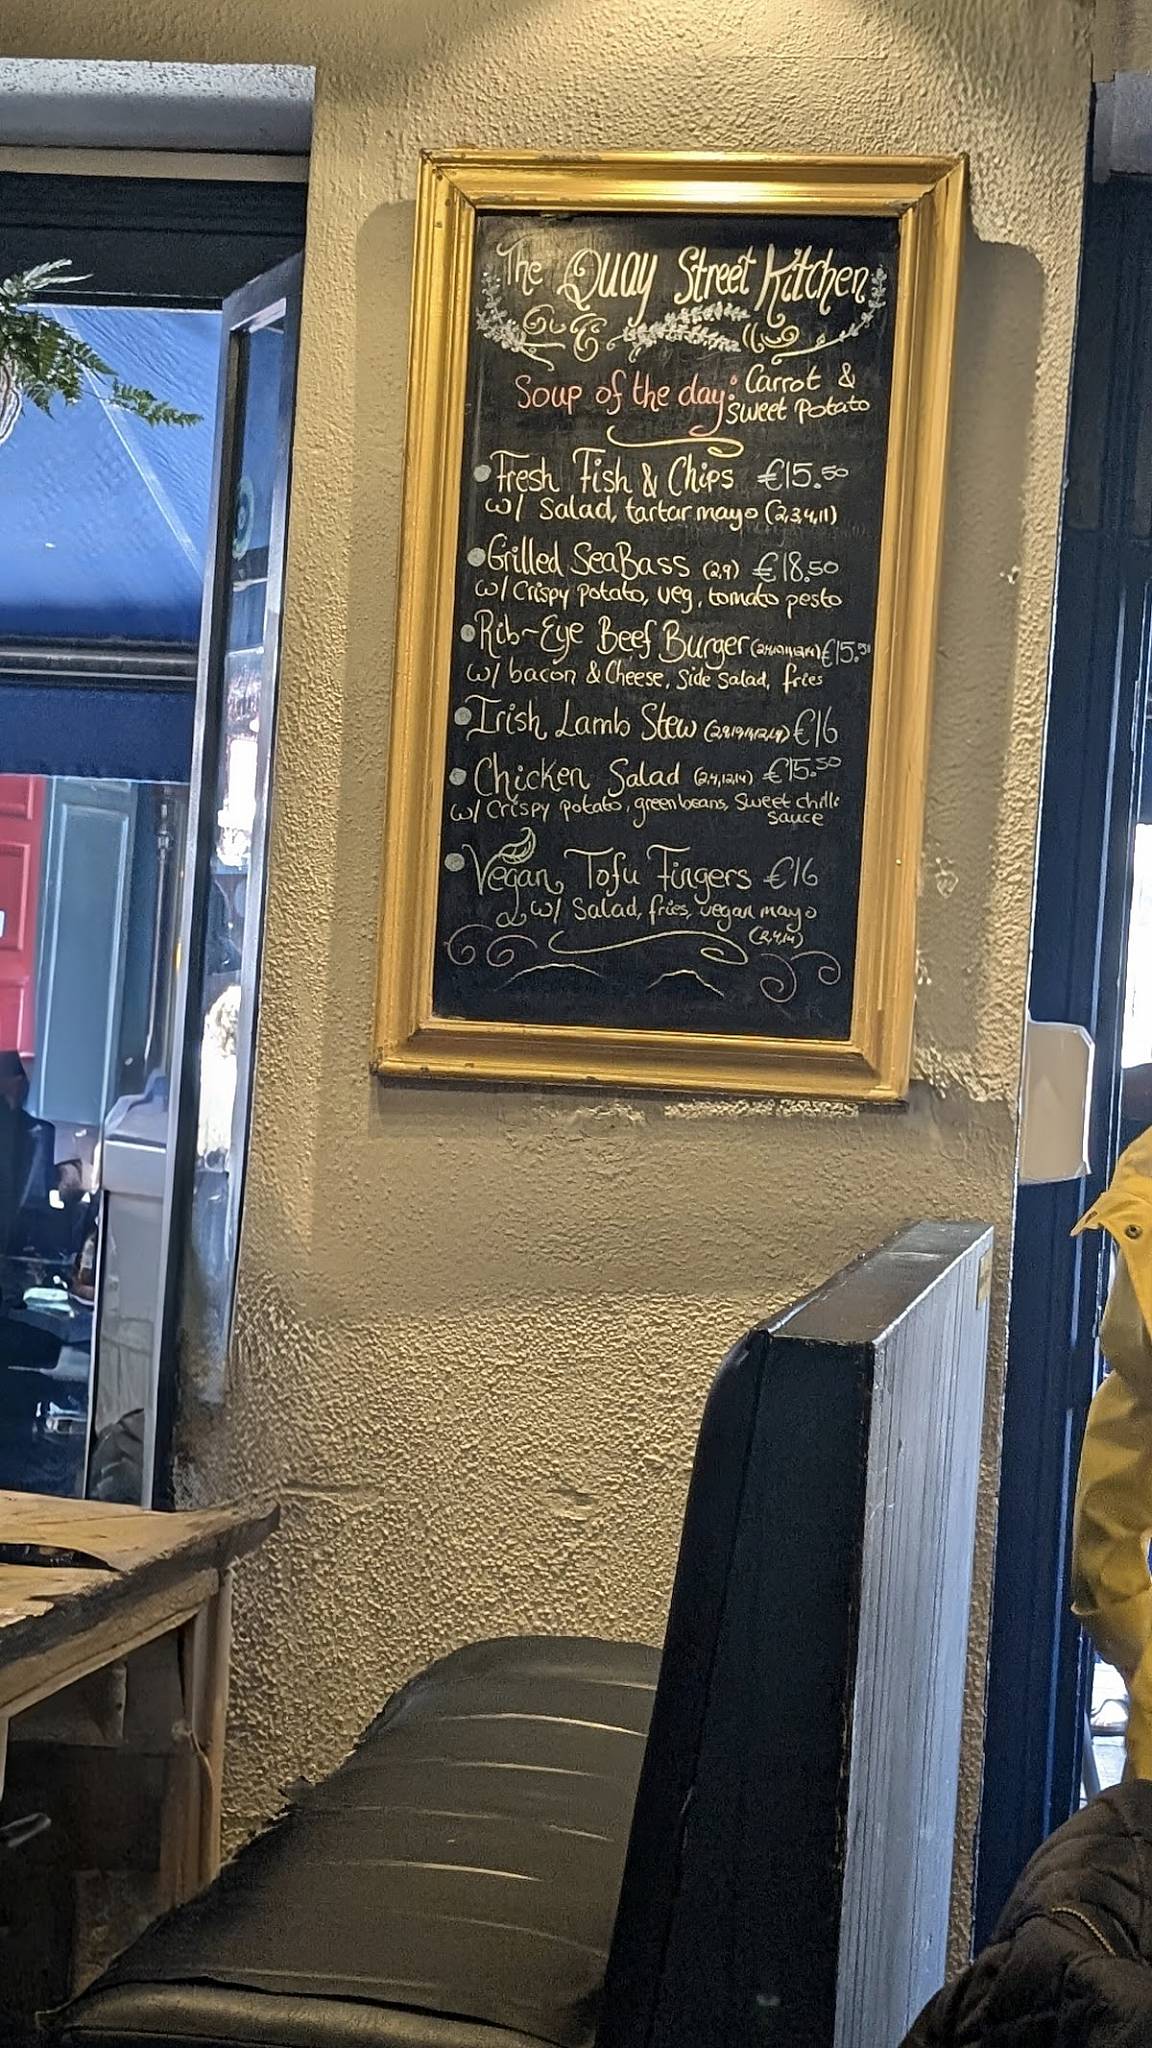 The Quay Street Kitchen
Soup of the day: Carrot &
Sweet Potato
Fresh Fish & Chips €15.50
w/ Salad, tartar mayo (2,3,4,11)
Grilled SeaBass (2,9) €18.50
w/ Crispy potato, veg, tomato pesto
Rib-Eye Beef Burger €15.50
w/ bacon & Cheese, Side Salad, fries
Irish Lamb Stew €16
Chicken Salad (2,4,12,14) €15.50
w/ Crispy potato, green beans, Sweet chilli
sauce
Vegan Tofu Fingers €16
w/ Salad, fries, vegan mayo
(2,4,14)